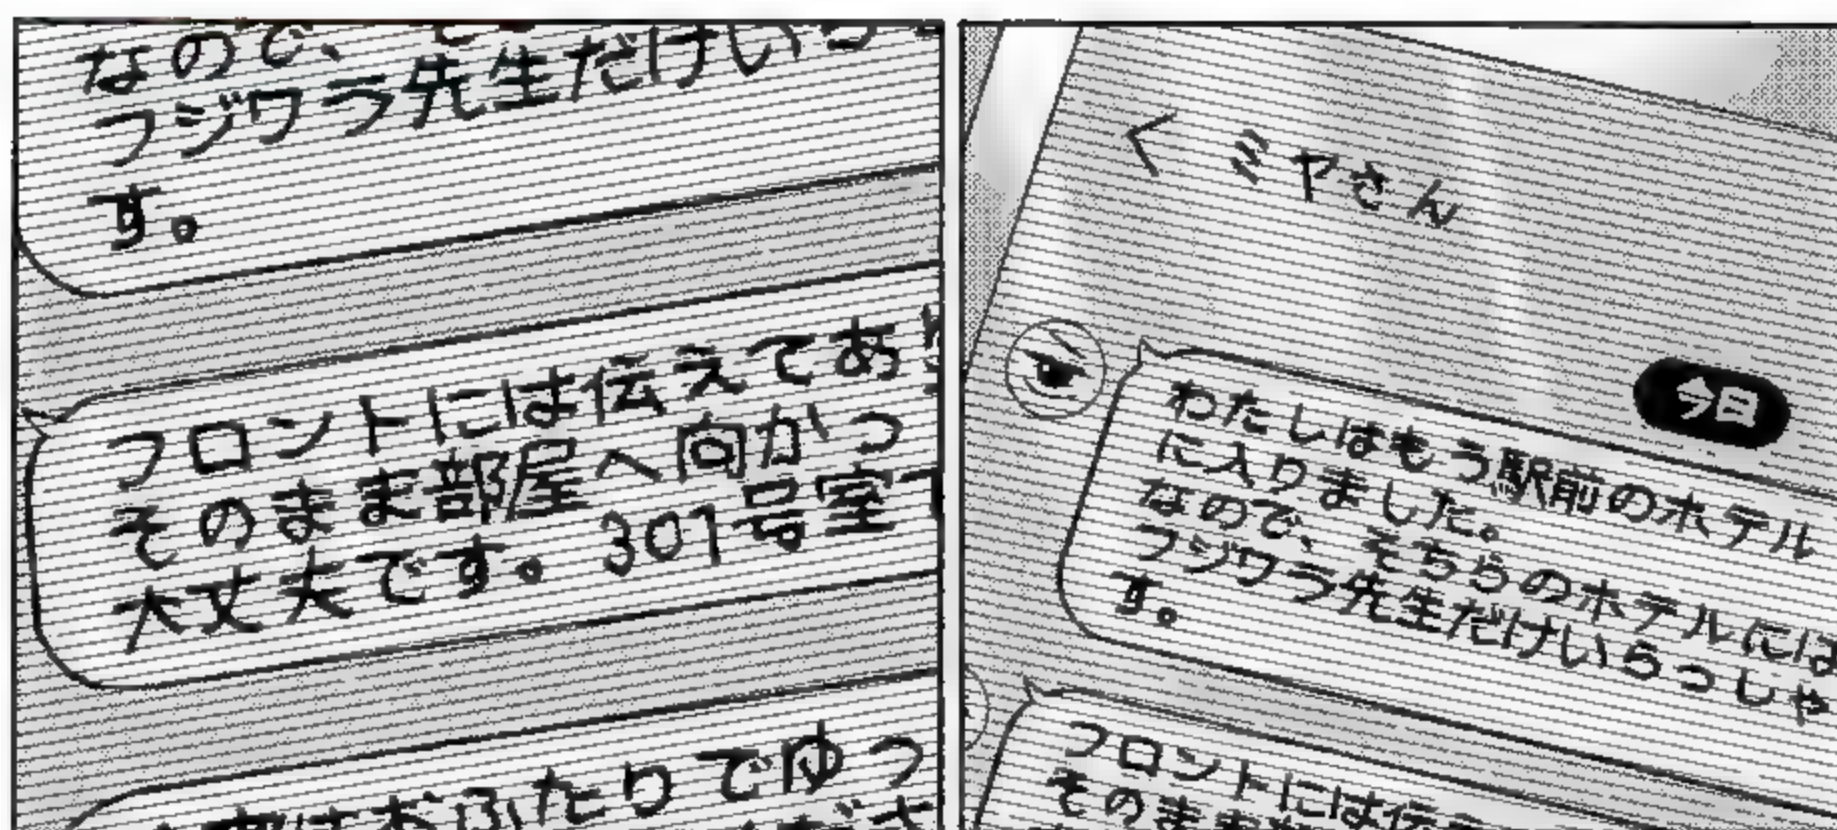 < ミヤさん
今日
わたしはもう駅前のホテル
に入りました。
なので、そちらのホテルには
フジワラ先生だけいらっしゃ
す。
フロントには伝え
そのまま部
なので、そ
フジワラ先生だけいらっ
す。
フロントには伝えてあり
そのまま部屋へ向かっ
大丈夫です。301号室で
はおふたりでゆっ